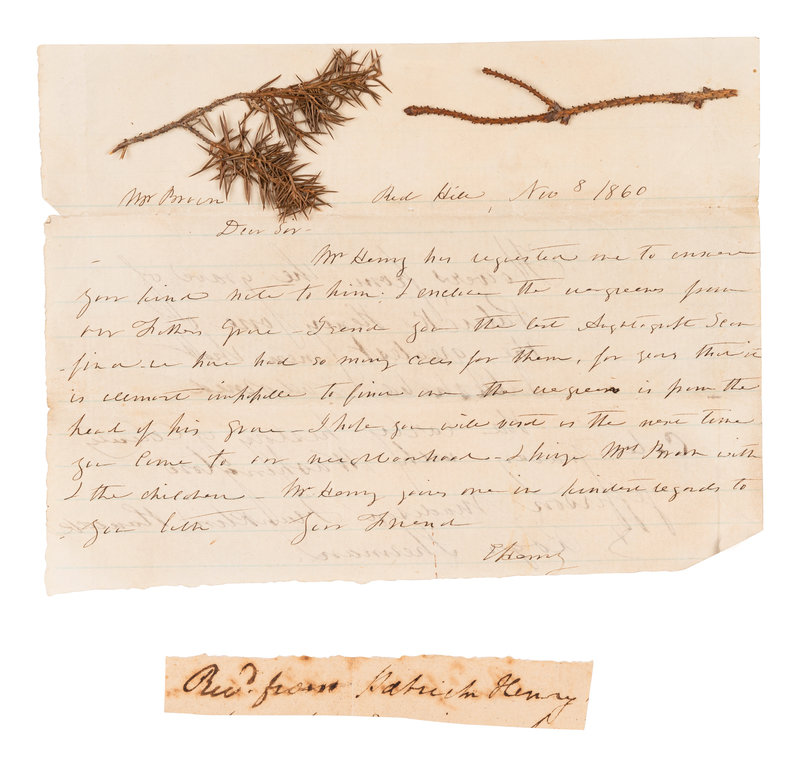 Mr Brown Red Hill, Nov 8 1860
Dear Sir-
Mr Henry has requested me to answer
your kind note to him. I enclose the evergreens from
our Fathers Grave - I send you the best Autograph I can
find - we have had so many calls for them, for years that it
is allmost impossible to find one the evergreen is from the
head of his Grave - I hope you will visit us the next time
you come to our neighborhood - I hope Mrs Brown with
the children - Mr Henry joins me in kindest regards to
you both Your Friend
E Henry
Recd. from Patrick Henry